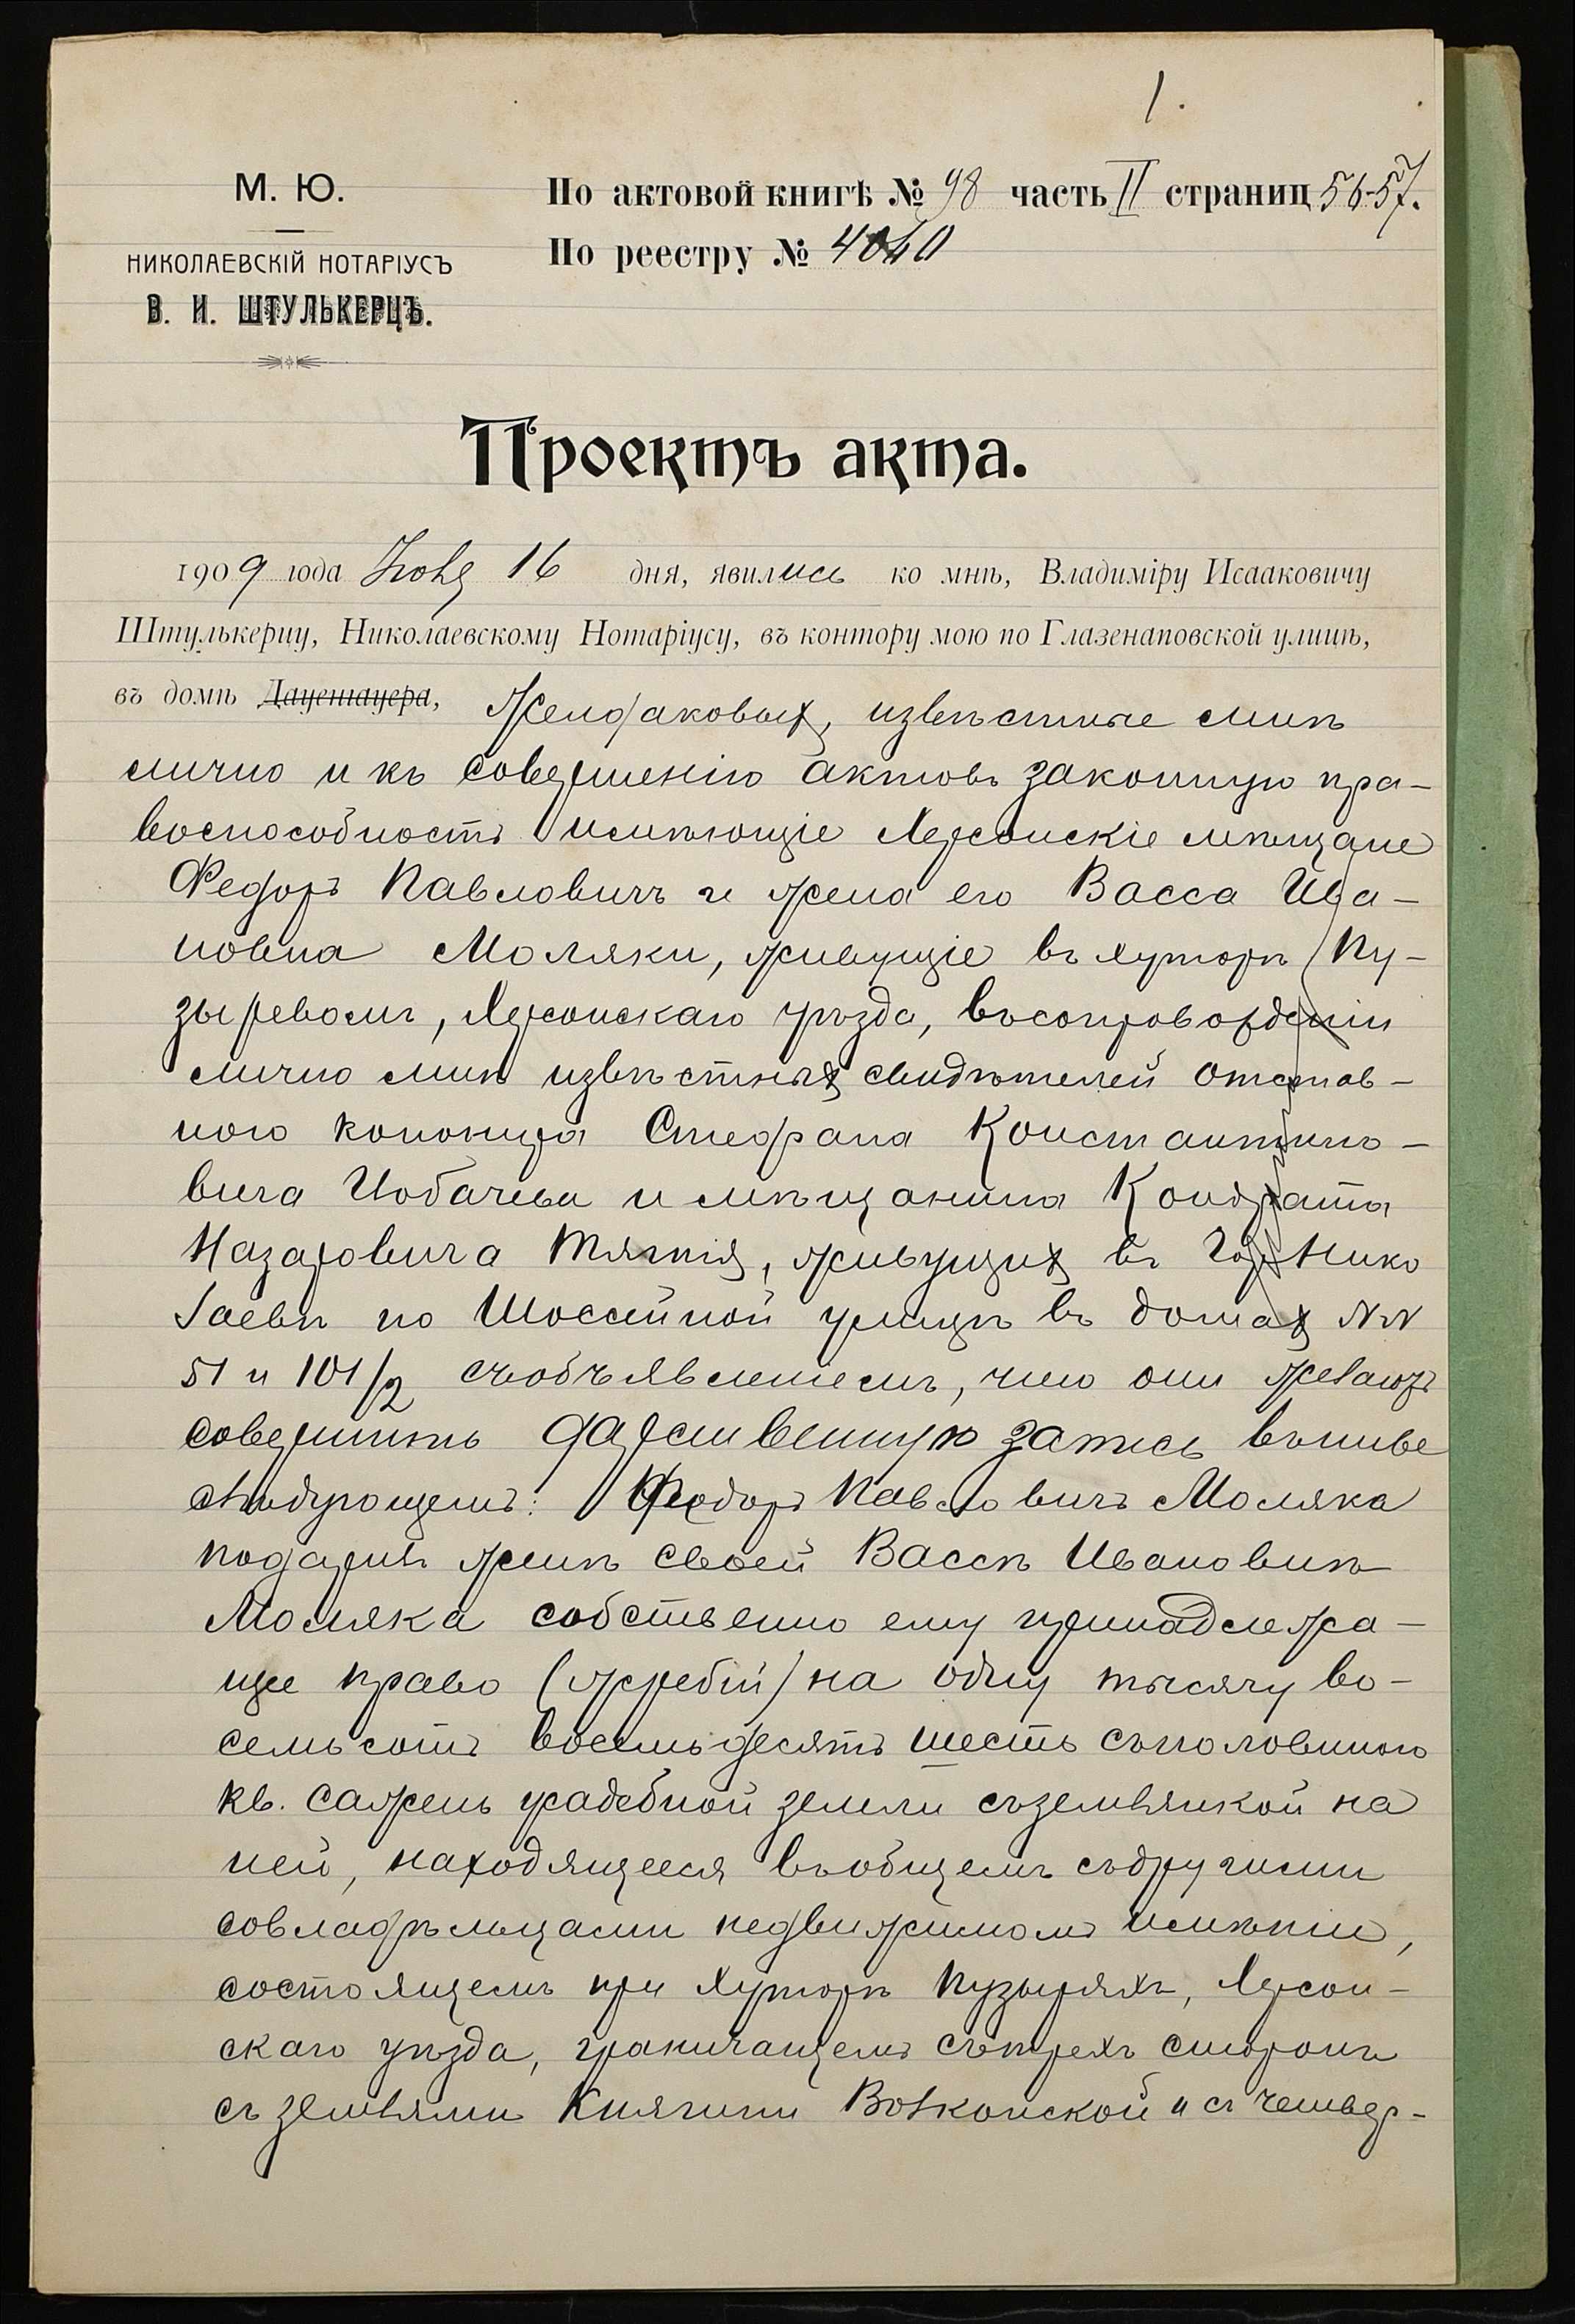 1.
М. Ю.
НИКОЛАЕВСКІЙ НОТАРІУСЪ
В. И. ШТУЛЬКЕРЦЪ.
По актовой книгѣ № 98 часть II страниц 56-57.
По реестру № 4040
Проектъ акта.
1909 года Іюня 16 дня, явились ко мнѣ, Владиміру Исааковичу
Штулькерцу, Николаевскому Нотаріусу, въ контору мою по Глазенаповской улицѣ,
въ домѣ Дауенгауера, извѣстные мнѣ
лично и къ совершенію актовъ законную пра-
воспособность имѣющіе Херсонскіе мѣщане
Федоръ Павловичъ и жена его Васса Ива-
новна Моляки, живущіе въ хуторѣ Пу-
зыревомъ, Херсонскаго уѣзда, въ сопровожденіи
лично мнѣ извѣстных свидѣтелей отстав-
ного Стефана Константино-
вича и мѣщанина Кондрата
Назаровича Тягнія, живущих въ гор. Нико
лаевѣ по Шоссейной улицѣ въ домах №№
51 и 101/2 съ объявленіемъ, что они желаютъ
совершить дарственную запись въ ниже
слѣдующемъ: Федоръ Павловичъ Моляка
подарилъ женѣ своей Вассѣ Ивановнѣ
Моляка собственно ему принадлежа-
щее право (жребій) на одну тысячу во-
семьсотъ восемьдесятъ шесть съ половиною
кв. сажень усадебной земли съ землянкой на
ней, находящееся въ общемъ съ другими
совладѣльцами недвижимомъ имѣніи,
состоящемъ при хуторѣ Пузыряхъ, Херсон-
скаго уѣзда, граничащемъ съ трехъ сторонъ
съ землями Княгини Волконской и съ четвер-